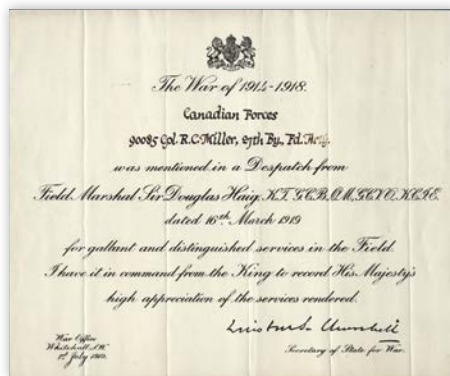 The War of 1914-1918.
Canadian Forces
90085 Cpl. R.C. Miller, 27th By., Fd. Arty.
was mentioned in a Despatch from
Field Marshal Sir Douglas Haig, K.T., G.C.B., O.M., G.C.V.O., K.C.I.E.
dated 16th March 1919
for gallant and distinguished services in the Field.
I have it in command from the King to record His Majesty's
high appreciation of the services rendered.
Winston S. Churchill
War Office
Whitehall, S.W.
1st July 1919.
Secretary of State for War.